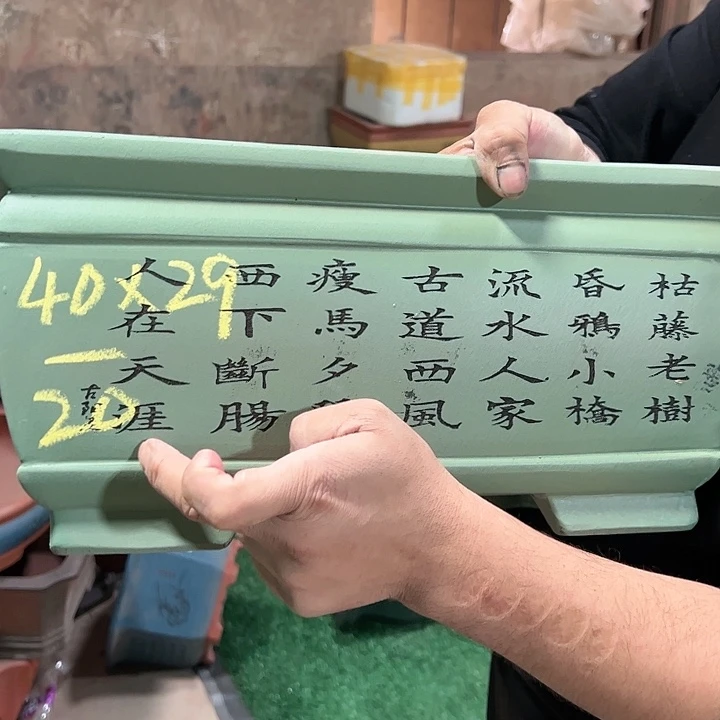 枯藤老樹
昏鴉小橋
流水人家
古道西風
瘦馬夕
西下斷腸
人在天涯
40x29
20